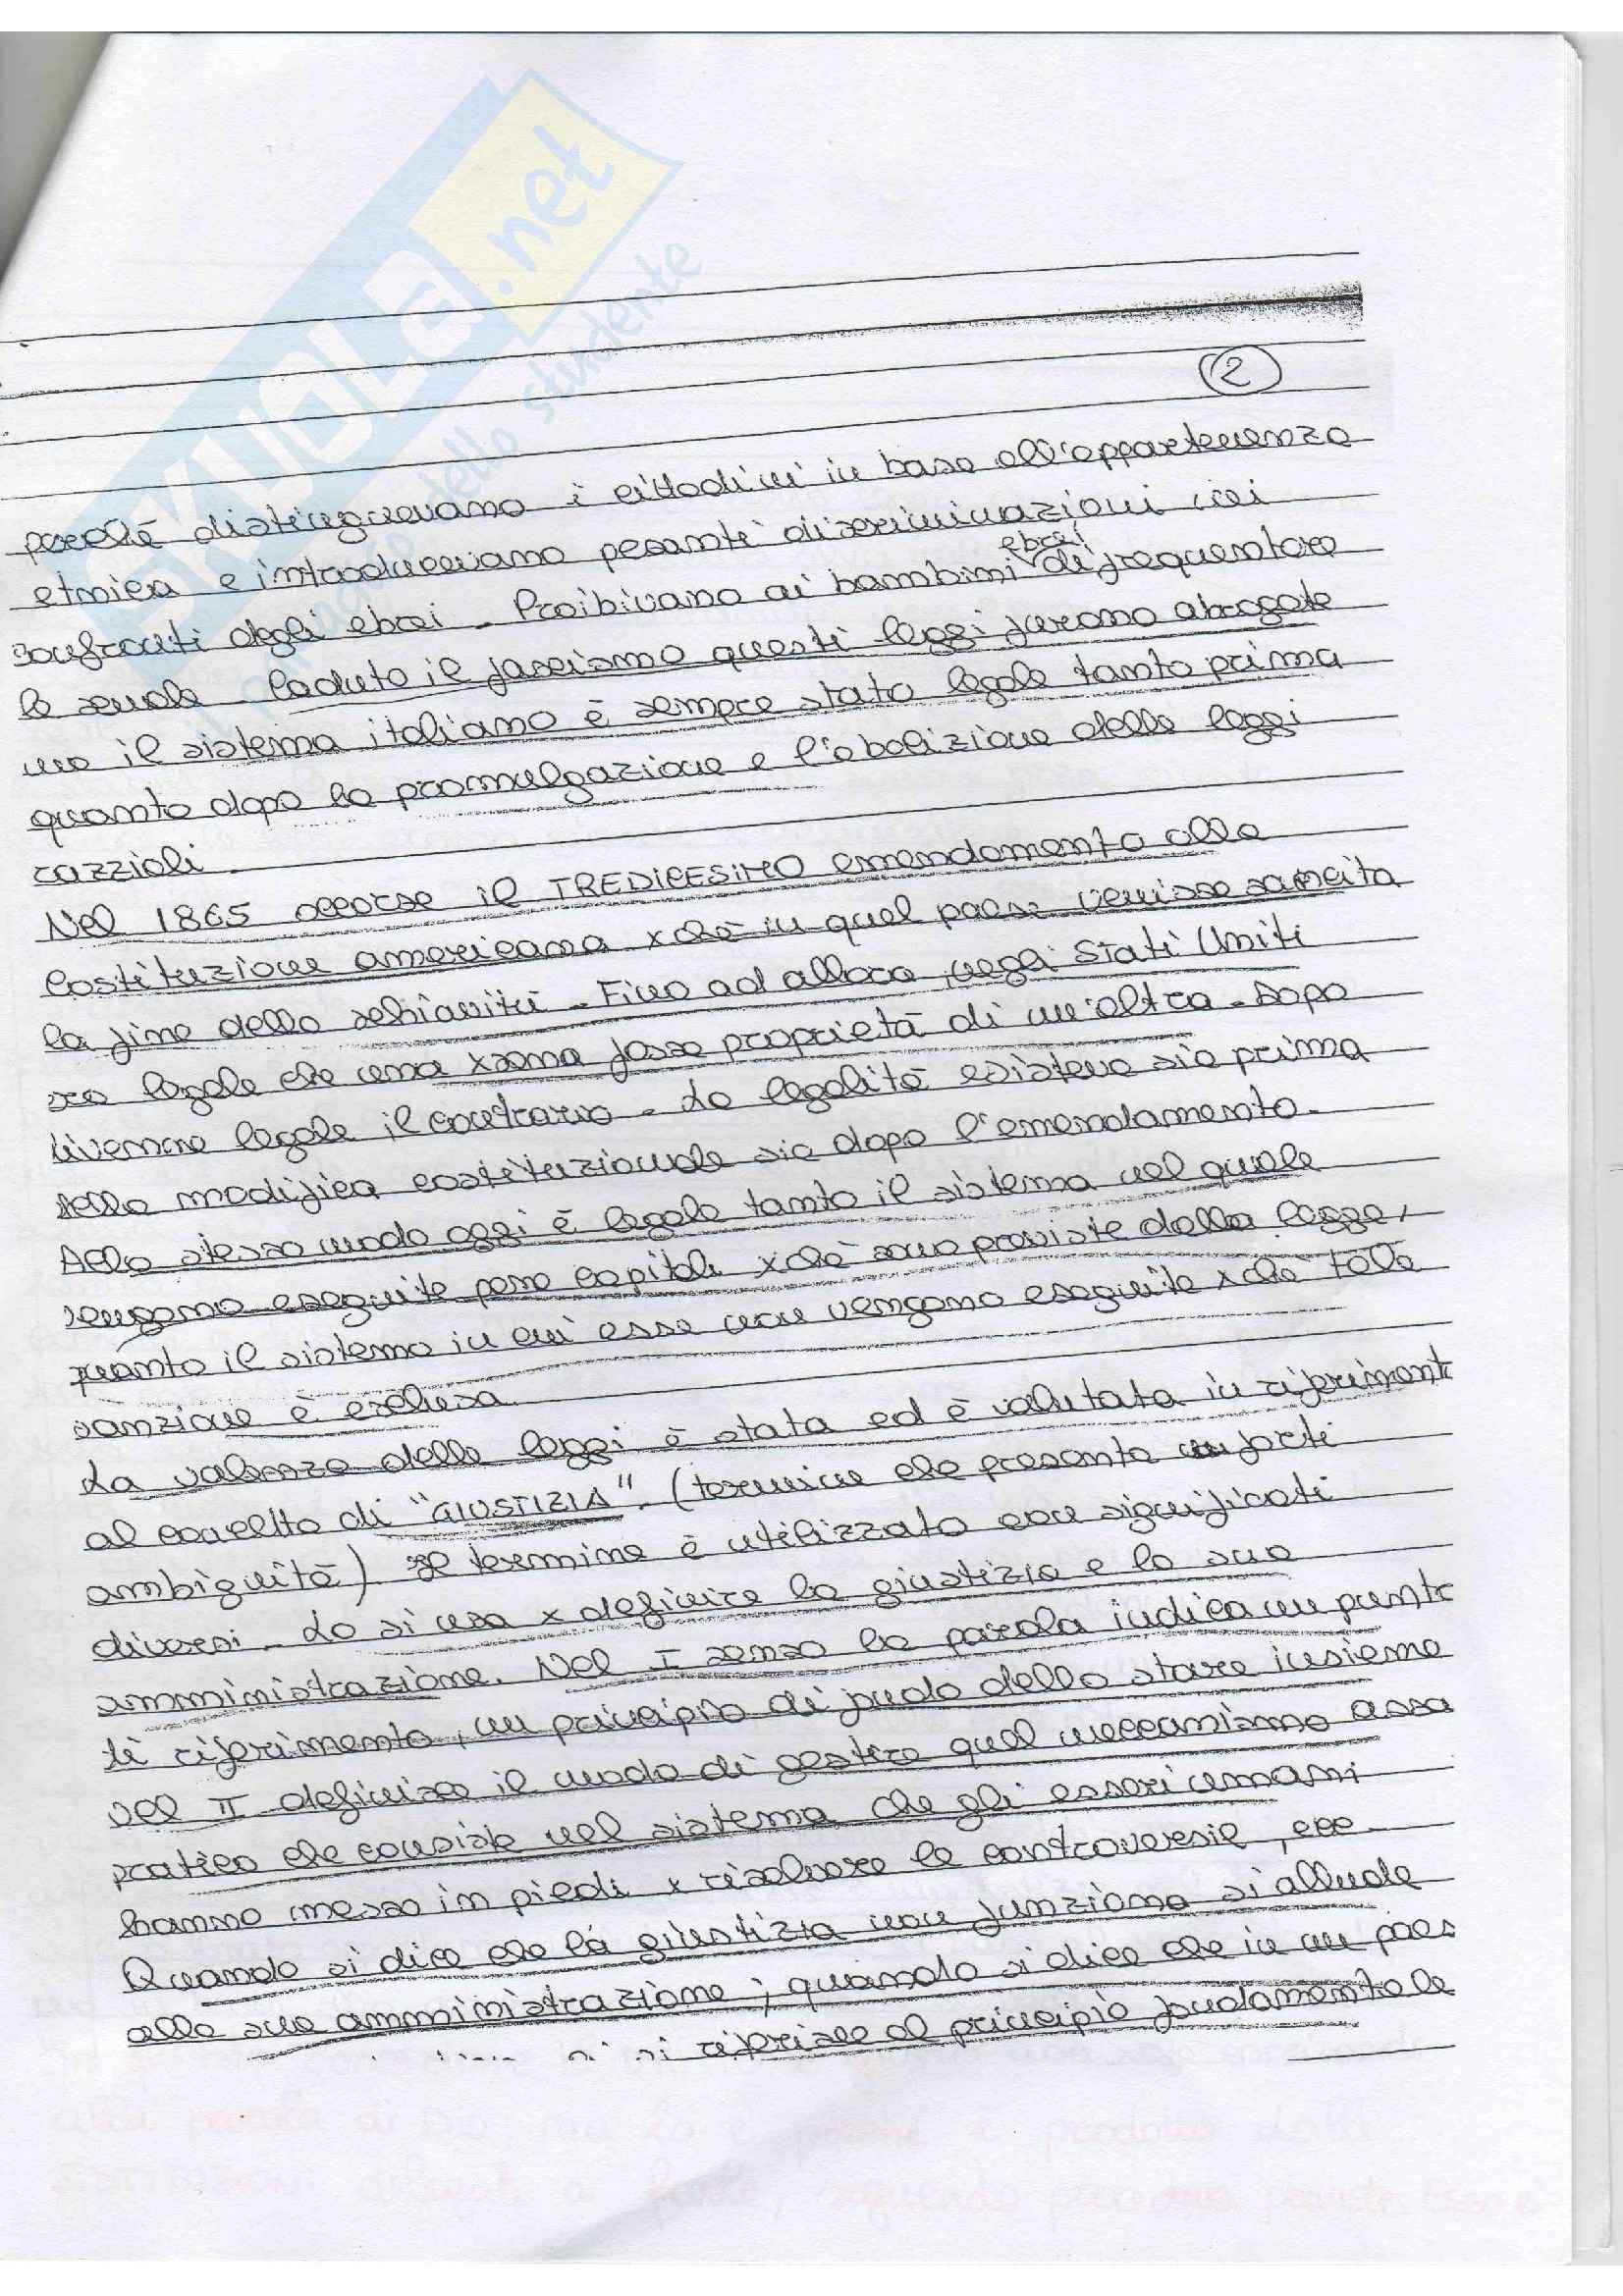 SKUOLA.net
il paradiso dello studente
2
perché distinguevano i cittadini in base all'appartenenza
etnica e introducevano pesanti discriminazioni nei
confronti degli ebrei. Proibivano ai bambini ebrei di frequentare
le scuole. Caduto il fascismo questi leggi furono abrogate
ma il sistema italiano è sempre stato legale tanto prima
quanto dopo la promulgazione e l'abolizione delle leggi
razziali.
Nel 1865 occorse il TREDICESIMO emendamento alla
Costituzione americana xchè in quel paese venisse sancita
la fine della schiavitù. Fino ad allora, negli Stati Uniti
era legale che una xsona fosse proprietà di un'altra. Dopo
divenne legale il contrario. La legalità esisteva sia prima
della modifica costituzionale sia dopo l'emendamento.
Allo stesso modo oggi è legale tanto il sistema nel quale
vengono eseguite pene capitali xchè sono previste dalla legge,
quanto il sistema in cui esse non vengono eseguite xchè tale
sanzione è esclusa.
La valenza delle leggi è stata ed è valutata in riferimento
al concetto di "GIUSTIZIA". (termine che presenta forti
ambiguità) Il termine è utilizzato con significati
diversi. Lo si usa x definire la giustizia e la sua
amministrazione. Nel I senso la parola indica un punto
di riferimento, un principio di fondo dello stare insieme
nel II definisce il modo di gestire quel meccanismo assa
pratico che consiste nel sistema che gli esseri umani
hanno messo in piedi x risolvere le controversie, ecc.
Quando si dice che la giustizia non funziona si allude
alla sua amministrazione; quando si dice che in un paes
ci si riferisce al principio fondamentale